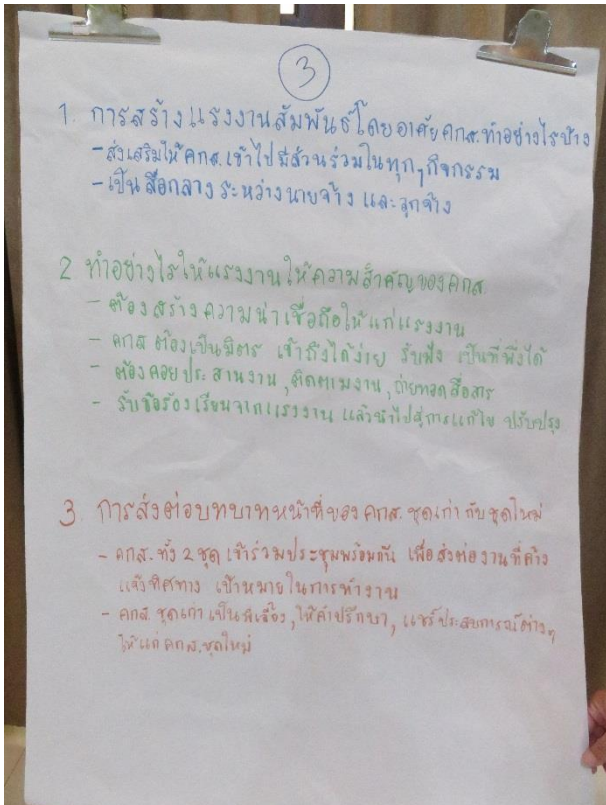 3
1. การสร้างแรงงานสัมพันธ์โดยอาศัยคกส.ทำอย่างไรบ้าง
- ส่งเสริมให้คกส.เข้าไปมีส่วนร่วมในทุกๆกิจกรรม
- เป็นสื่อกลางระหว่างนายจ้าง และลูกจ้าง
2 ทำอย่างไรให้แรงงานให้ความสำคัญของคกส.
- ต้องสร้างความน่าเชื่อถือให้แก่แรงงาน
- คกส ต้องเป็นมิตร เข้าถึงได้ง่าย รับฟัง เป็นที่พึ่งได้
- ต้องคอยประสานงาน, ติดตามงาน, ถ่ายทอดสื่อสาร
- รับข้อร้องเรียนจากแรงงาน แล้วนำไปสู่การแก้ไข ปรับปรุง
3. การส่งต่อบทบาทหน้าที่ของ คกส. ชุดเก่า กับ ชุดใหม่
- คกส. ทั้ง 2 ชุด เข้าร่วมประชุมพร้อมกัน เพื่อส่งต่องานที่ค้าง
แจ้งทิศทาง เป้าหมายในการทำงาน
- คกส. ชุดเก่า เป็นพี่เลี้ยง, ให้คำปรึกษา, แชร์ประสบการณ์ต่างๆ
ให้แก่ คกส. ชุดใหม่